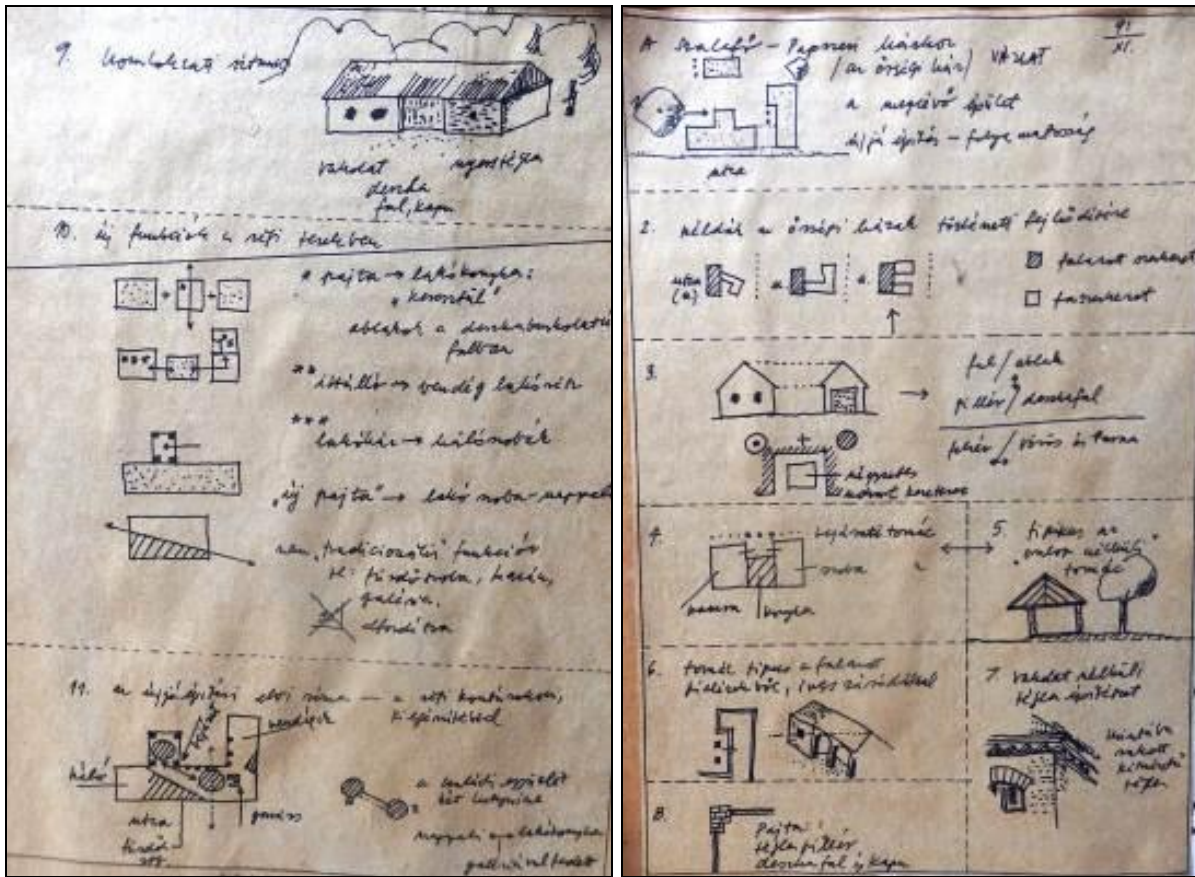 9. homlokzati ritmus
vakolat nyerstégla
deszka
fal, kapu
10. új funkciók a régi terekben
* pajta → lakókonyha:
"keresztül"
ablakok a deszkaburkolatú
falban
** istálló → vendég lakórész
*** lakóház → hálószobák
"új pajta" → lakószoba-nappali
nem "tradicionális" funkciók
pl: fürdőszoba, kazán,
galéria
11. az újjáépítési elvi séma — a régi kontúrokon,
kiegészítéssel
vendégek
háló
utca
fürdők
stb.
két
nappali
galériával fedett
A Szalafő - Papszeri házhoz
(az őrségi ház) VÁZLAT
91
XI.
a meglévő épület
újjáépítés - folyamatosság
utca
2. példák az őrségi házak történeti fejlődésére
utca
(a)
a.
a.
falazott szerkezet
faszerkezet
3.
fal / ablak
pillér / deszkafal
fehér / vörös és barna
négyzetes
4.
bejárati tornác
szoba
kamra konyha
5. tipikus az
"oszlop nélküli"
tornác
6. tornác tipus a falazott
pillérekből, íves záródással
7. vakolat nélküli
tégla építészet
mintába
rakott
tégla
8.
Pajta:
tégla pillér
deszka fal és kapu